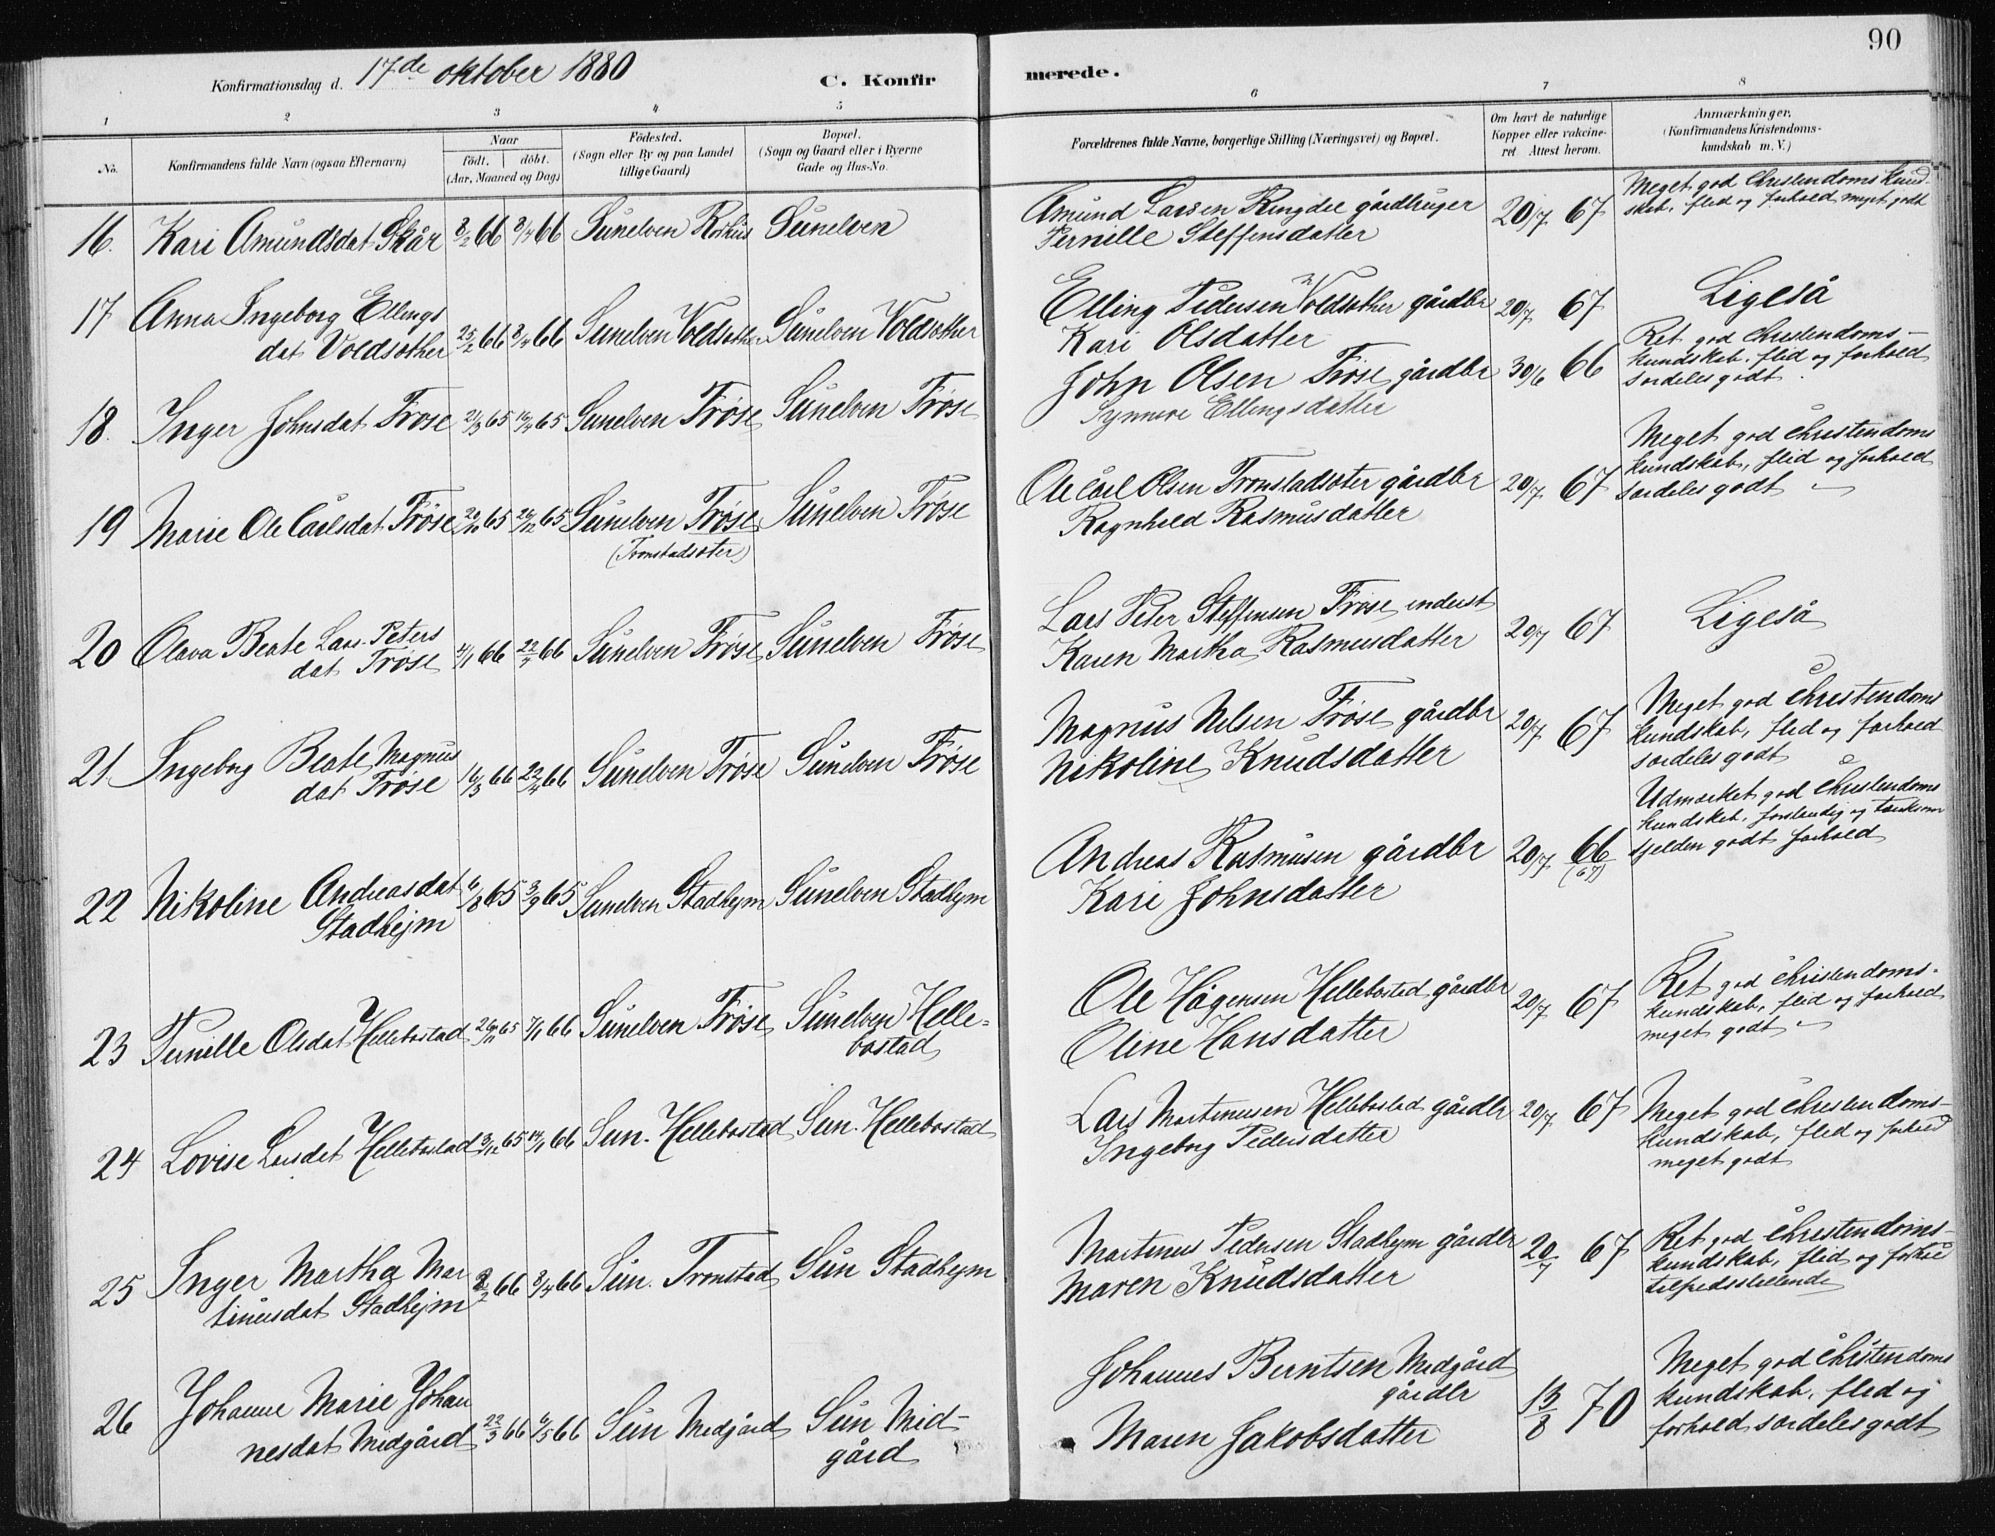 90
Konfirmationsdag d. 17de oktober 1880
C. Konfirmerede.
1 2 3 4 5 6 7 8
No.
Konfirmandens fulde Navn (ogsaa Efternavn)
Naar
født. døbt.
(Aar, Maaned og Dag)
Fødested.
(Sogn eller By og paa Landet
tillige Gaard)
Bopæl.
(Sogn og Gaard eller i Byerne
Gade og Hus-No.
Forældrenes fulde Navne, borgerlige Stilling (Næringsvei) og Bopæl.
Om havt de naturlige
Kopper eller vakcine-
ret Attest herom.
Anmærkninger.
(Konfirmandens Kristendoms-
kundskab m. V.)
16. Kari Amundsdat Skår 8/2 66 8/4 66 Sunelven Sunelven
Amund Larsen Ringdee gårdbruger
Pernille Steffensdatter
20/7 67
Meget god Christendoms kund-
skab, flid og forhold meget godt
17 Anna Ingeborg Ellings
dat Voldsæther 25/2 66 8/4 66 Sunelven Voldsæther Sunelven Voldsæther
Elling Pedersen Voldsæther gårdbr
Kari Olsdatter
20/7 67
Ligeså
18. Inger Johnsdat Frøse 21/3 65 16/4 65 Sunelven Frøse Sunelven Frøse
John Olsen Frøse gårdbr
Synneve Ellingsdatter
30/6 66
Ret god Christendoms-
kundskab, flid og forhold
særdeles godt
19 Marie Ole Carlsdat Frøse 65 26/12 65 Sunelven Frøse Sunelven Frøse
(Tronstadsæter)
Ole Carl Olsen Tronstadsæter gårdbr
Ragnhild Rasmusdatter
20/7 67
Meget god Christendoms
kundskab, flid og forhold
særdeles godt
20 Olava Beate Lars-Peters
dat Frøse 4/1 66 22/7 66 Sunelven Frøse Sunelven Frøse
Lars Peter Steffensen Frøse inderst
Karen Martha Rasmusdatter
20/7 67
Ligeså
21 Ingeborg Beate Magnus
dat Frøse 16/3 66 22/4 66 Sunelven Frøse Sunelven Frøse
Magnus Nilsen Frøse gårdbr
Nikoline Knudsdatter
20/7 67
Meget god Christendoms
kundskab, flid og forhold
særdeles godt
22 Nikoline Andreasdat
Stadhejm 6/8 65 3/9 65 Sunelven Stadhejm Sunelven Stadhejm
Andreas Rasmusen gårdbr
Kari Johnsdatter
20/7 66
(67)
Udmærket god Christendoms
kundskab, forstandig og tænksom
sjelden godt forhold
23 Pernille Olsdat Hellebostad 26/11 65 7/1 66 Sunelven Frøse Sunelven Helle-
bostad
Ole Hågensen Hellebostad gårdbr
Oline Hansdatter
20/7 67
Ret god Christendoms-
kundskab, flid og forhold
meget godt
24 Lovise Larsdat Hellebostad 3/12 65 14/1 66 Sun. Hellebostad Sun. Hellebostad
Lars Martinusen Hellebostad gårdbr
Ingeborg Pedersdatter
20/7 67
Meget god Christendoms-
kundskab, flid og forhold
meget godt
25 Inger Martha Mar
tinusdat Stadhejm 2/2 66 8/4 66 Sun. Tronstad Sun Stadhejm
Martinus Pedersen Stadhejm gårdbr
Maren Knudsdatter
20/7 67
Ret god Christendoms-
kundskab, flid og forhold
tilfredsstillende
26 Johanne Marie Johan
nesdat Midgård 22/3 66 6/5 66 Sun Midgård Sun Mid-
gård
Johannes Berntsen Midgård
gårdbr
Maren Jakobsdatter
13/8 70
Meget god Christendoms
kundskab, flid og
forhold særdeles godt